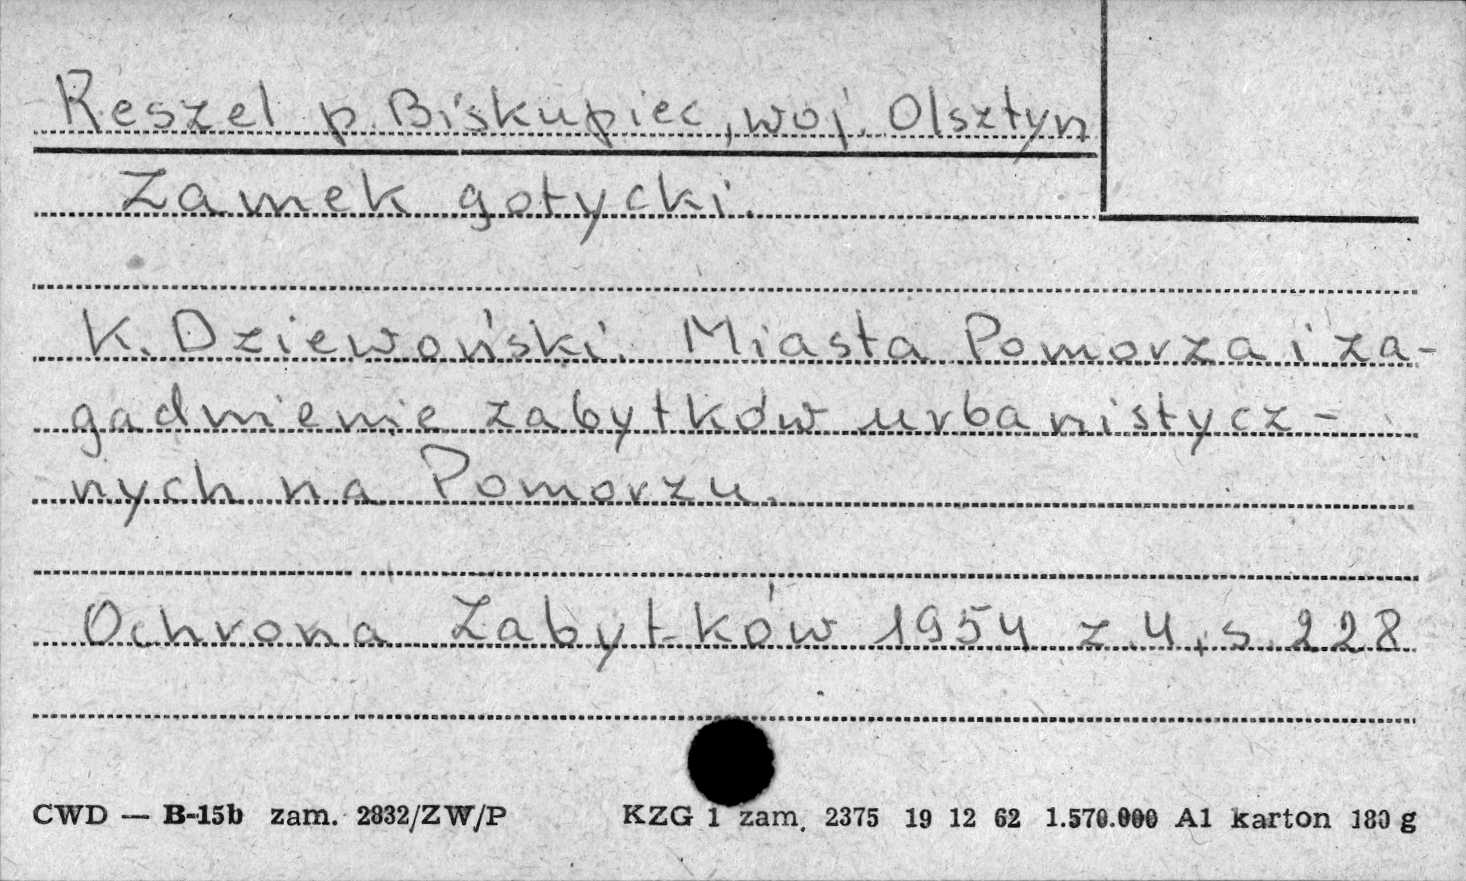 Reszel p. Biskupiec, woj. Olsztyn
Zamek gotycki.
K. Dziewoński. Miasta Pomorza i za-
gadnienie zabytków urbanistycz-
nych na Pomorzu.
Ochrona Zabytków 1954 z. 4, s. 228
CWD — B-15b zam. 2832/ZW/P KZG 1 zam. 2375 19 12 62 1.570.000 A1 karton 180 g